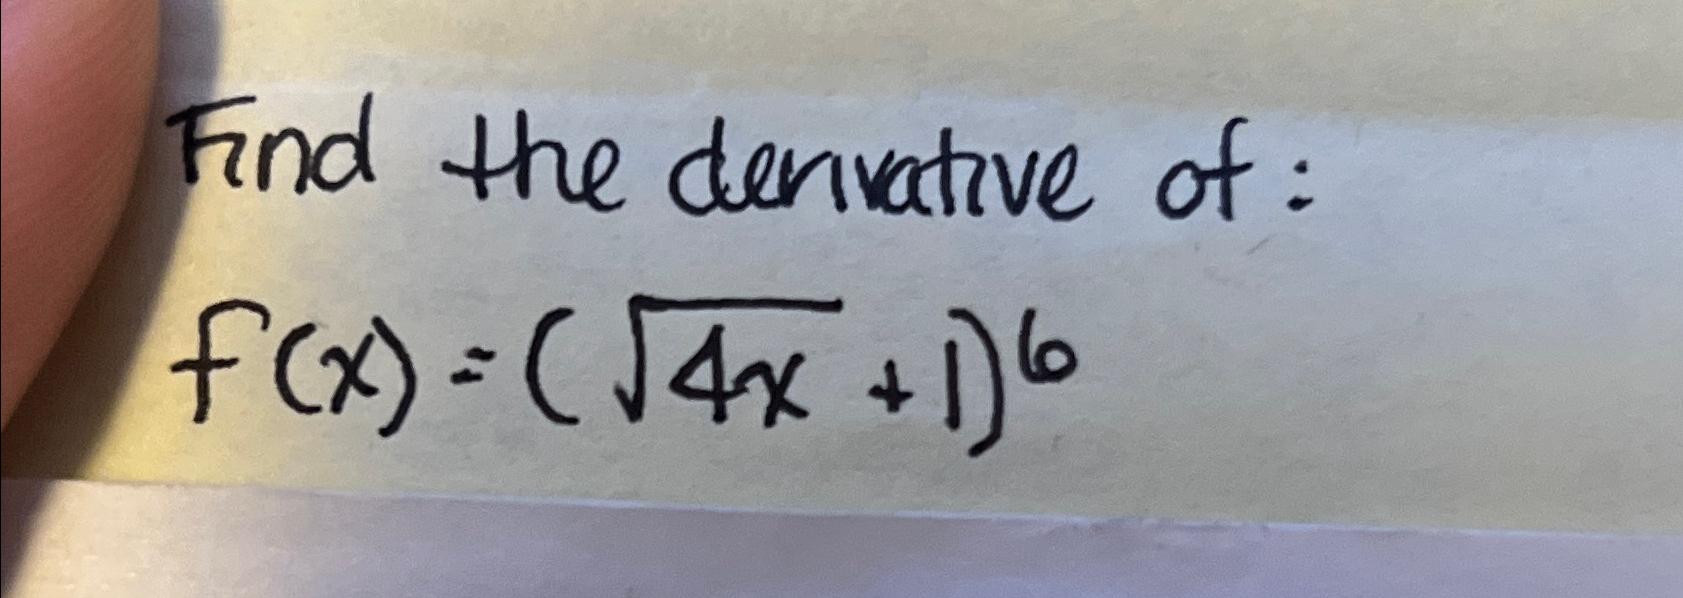 Find the derivative of:
f(x) = (√4x + 1)^6